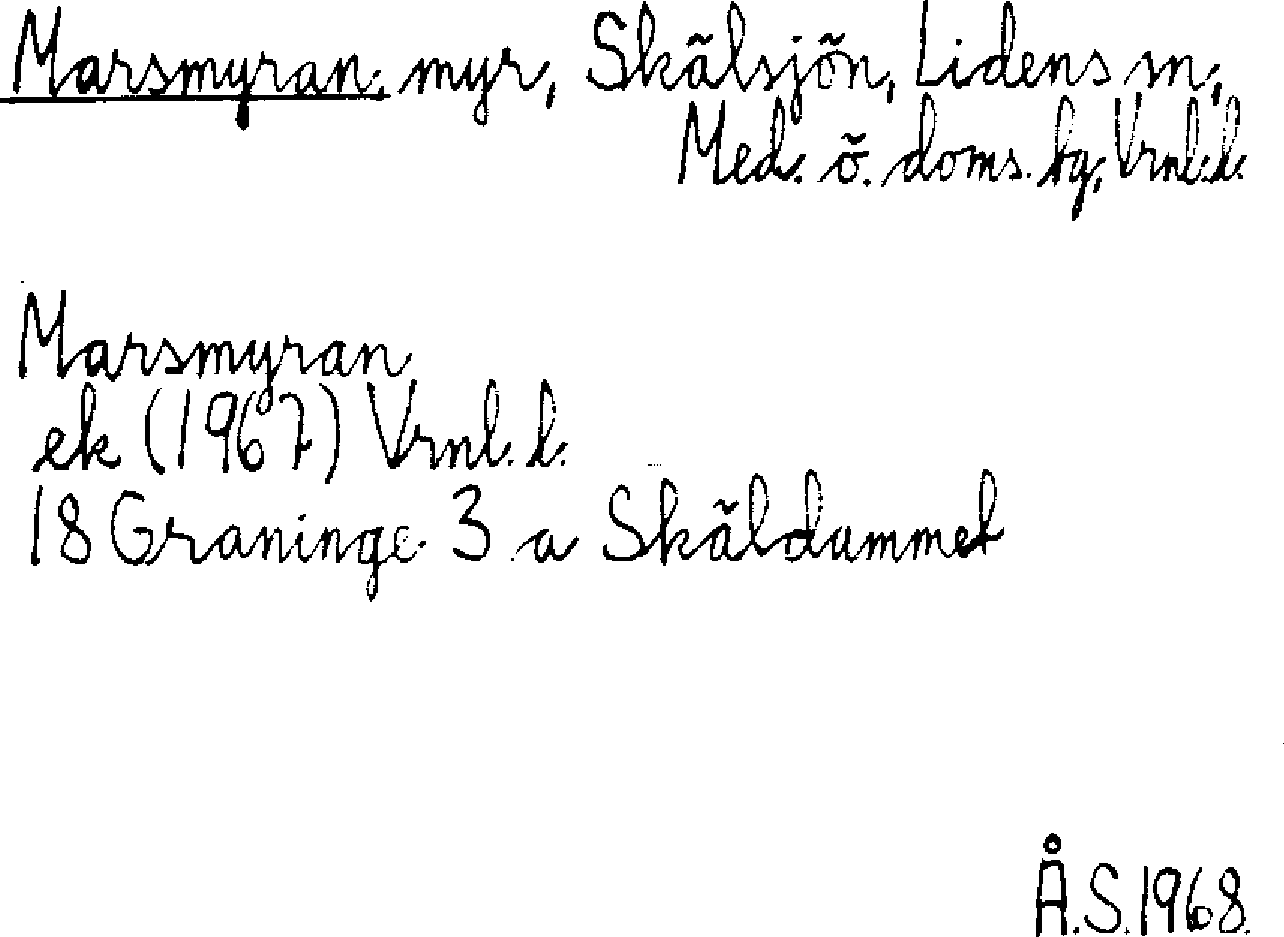 Marsmyran, myr, Skälsjön, Lidens sn,
Med. ö. doms. tg, Vrnl. l.
Marsmyran
ek (1967) Vrnl. l.
18 Graninge 3 a Skäldammet
Å.S. 1968.